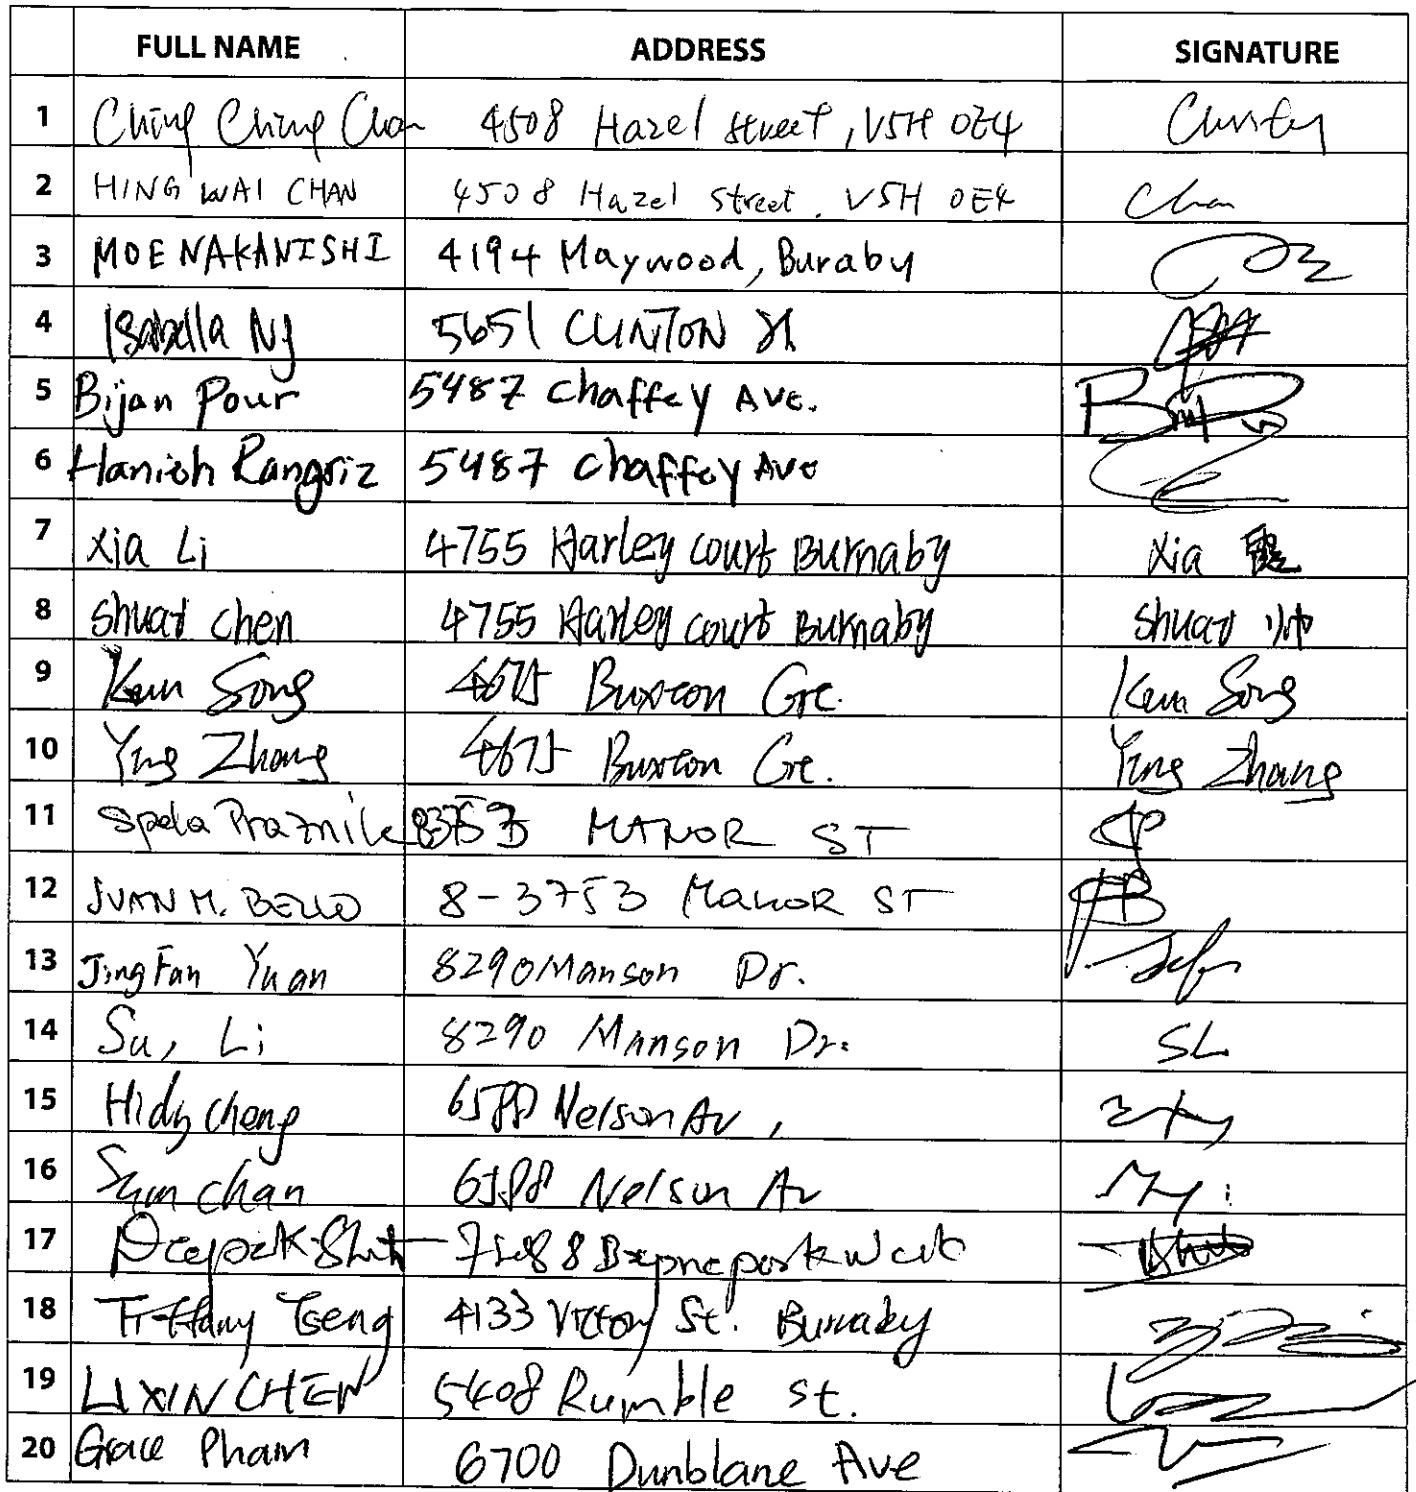 FULL NAME ADDRESS SIGNATURE
1 Ching Ching Chan 4508 Hazel street, V5H 0E4 Christy
2 HING WAI CHAN 4508 Hazel street, V5H 0E4 Chan
3 MOE NAKANISHI 4194 Maywood, Buraby
4 Isabella Ng 5651 CLINTON St
5 Bijan Pour 5487 Chaffey Ave.
6 Hanieh Rangriz 5487 Chaffey Ave
7 Xia Li 4755 Harley court Burnaby Xia 霞
8 Shuai chen 4755 Harley court Burnaby Shuai 帅
9 Kun Song 4675 Buxton Cre. Kun Song
10 Ying Zhang 4675 Buxton Cre. Ying Zhang
11 Spela Praznik MANOR ST SP
12 JUAN M. BELLO 8-3753 MANOR ST JB
13 JingFan Yuan 8290 Manson Dr.
14 Su, Li 8290 Manson Dr. SL
15 cheng Nelson Av,
16 chan Nelson Av
17 Deepak
18 Tiffany Tseng 4133 Victory St. Burnaby
19 LIXIN CHEN 5408 Rumble st.
20 Grace Pham 6700 Dunblane Ave